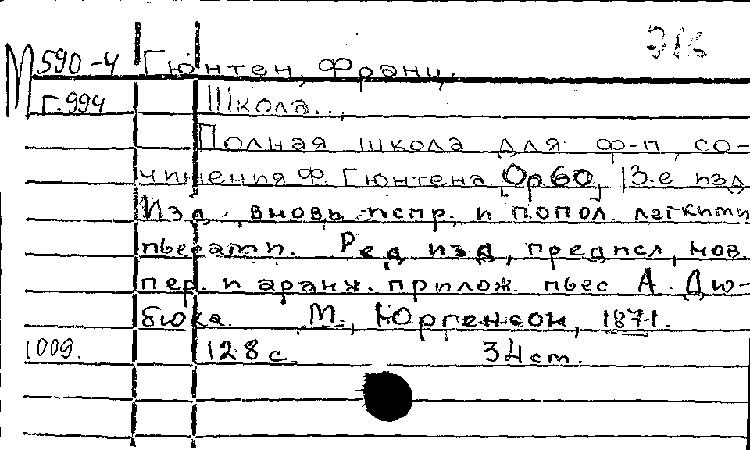 М590-4 Гюнтен, Франц.
Г.994 Школа...
Полная школа для ф-п, со-
чинения Ф. Гюнтена, Ор 60, 13-е изд.
Изд. вновь испр. и попол. легкими
пьесами. Ред. изд., предисл., нов.
пер. и аранж. прилож. пьес А. Дю-
бюка. М., Юргенсон, 1871.
1009. 128 с. 34 cm.